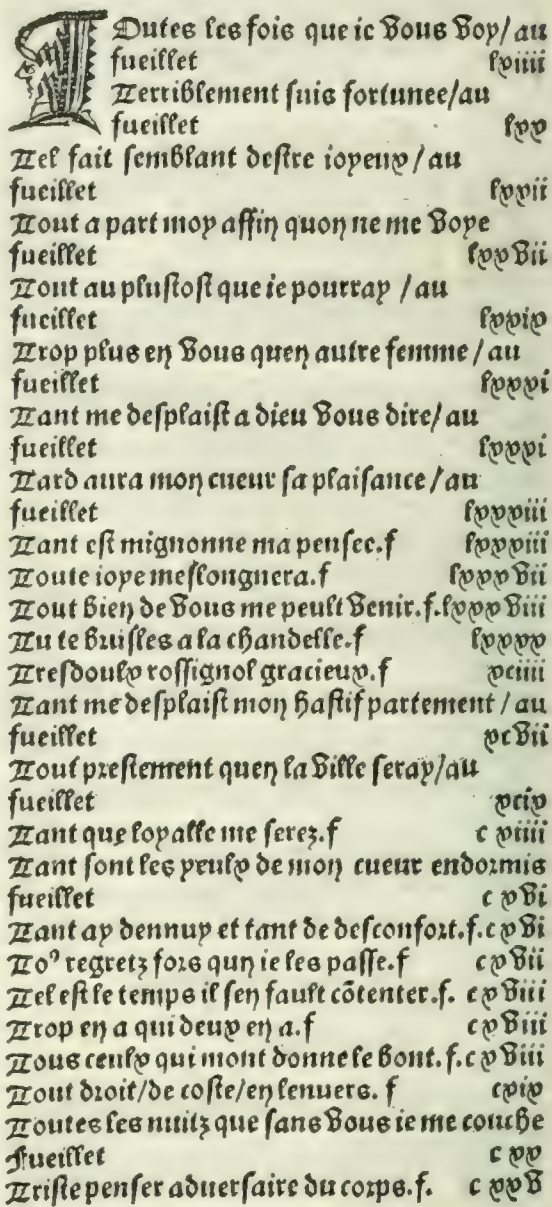 TOutes les fois que ie vous voy/ au
fueillet lxiiii
Terriblement suis fortunee/au
fueillet lxx
Tel fait semblant destre ioyeux / au
fueillet lxxii
Tout a part moy affin quon ne me voye
fueillet lxxvii
Tout au plustost que ie pourray / au
fueillet lxxix
Trop plus en vous quen autre femme / au
fueillet lxxxi
Tant me desplaist a dieu vous dire/ au
fueillet lxxxi
Tard aura mon cueur sa plaisance / au
fueillet lxxxiii
Tant est mignonne ma pensee.f lxxxiii
Toute ioye meslongnera.f lxxxvii
Tout bien de vous me peult venir.f.lxxxviii
Tu te brusles a la chandelle.f lxxxx
Tresdoulx rossignol gracieux.f xciiii
Tant me desplaist mon hastif partement / au
fueillet xcvii
Tout prestement quen la ville seray/au
fueillet xcix
Tant que loyalle me serez.f c xiiii
Tant sont les yeulx de mon cueur endormis
fueillet c xvi
Tant ay dennuy et tant de desconfort.f.c xvi
To⁹ regretz fors qun ie les passe.f c xvii
Tel est le temps il sen fault cõtenter.f. c xviii
Trop en a qui deux en a.f c xviii
Tous ceulx qui mont donne le bont.f.c xviii
Tout droit/de coste/en lenuers. f cxix
Toutes les nuitz que sans vous ie me couche
Fueillet c xx
Triste penser aduersaire du corps.f. c xxv